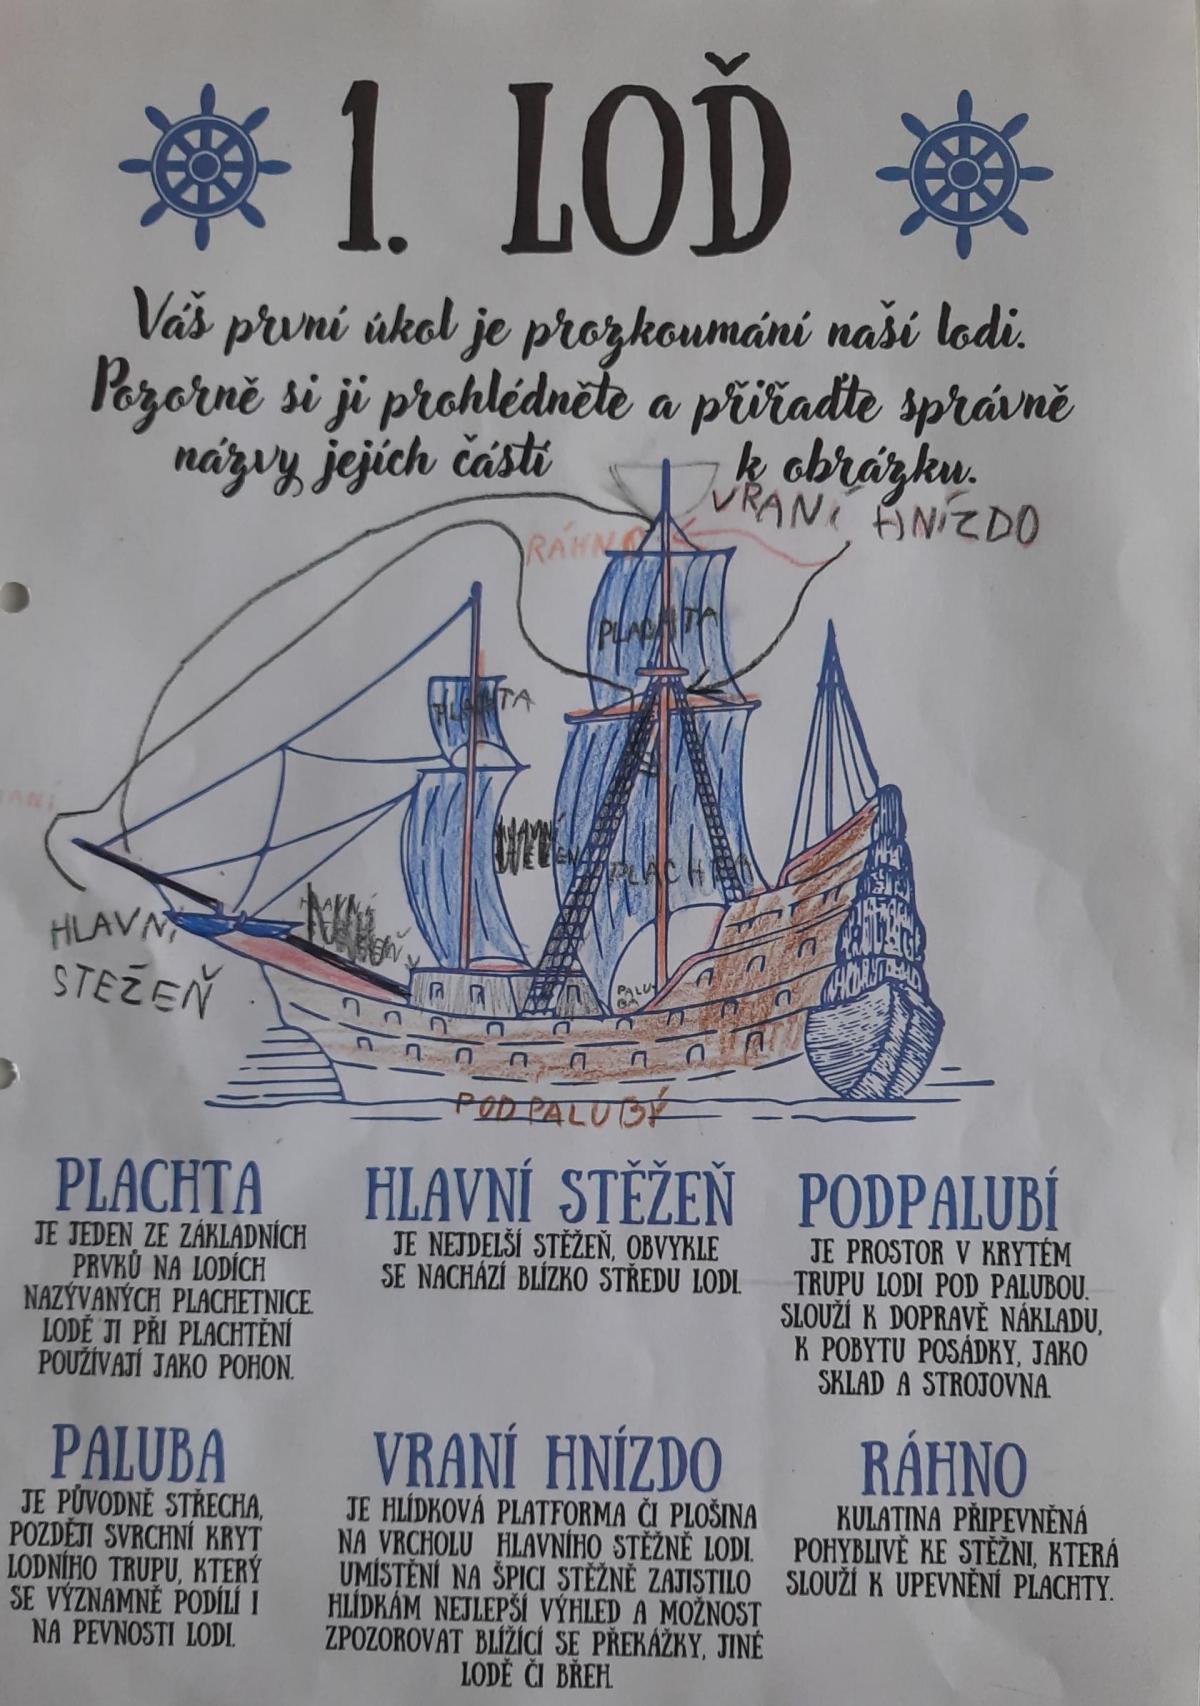 1. LOĎ
Váš první úkol je prozkoumání naší lodi.
Pozorně si ji prohlédněte a přiřaďte správně
názvy jejích částí k obrázku.
VRANÍ HNÍZDO
RÁHNO
PLACHTA
PLACHTA
HLAVNÍ
PLACHTA
HLAVNÍ
HLAVNÍ
STEŽEŇ
PALU-
BA
PODPALUBÝ
PLACHTA
JE JEDEN ZE ZÁKLADNÍCH
PRVKŮ NA LODÍCH
NAZÝVANÝCH PLACHETNICE.
LODĚ JI PŘI PLACHTĚNÍ
POUŽÍVAJÍ JAKO POHON.
HLAVNÍ STĚŽEŇ
JE NEJDELŠÍ STĚŽEŇ, OBVYKLE
SE NACHÁZÍ BLÍZKO STŘEDU LODI.
PODPALUBÍ
JE PROSTOR V KRYTÉM
TRUPU LODI POD PALUBOU.
SLOUŽÍ K DOPRAVĚ NÁKLADU,
K POBYTU POSÁDKY, JAKO
SKLAD A STROJOVNA.
PALUBA
JE PŮVODNĚ STŘECHA,
POZDĚJI SVRCHNÍ KRYT
LODNÍHO TRUPU, KTERÝ
SE VÝZNAMNĚ PODÍLÍ I
NA PEVNOSTI LODI.
VRANÍ HNÍZDO
JE HLÍDKOVÁ PLATFORMA ČI PLOŠINA
NA VRCHOLU HLAVNÍHO STĚŽNĚ LODI.
UMÍSTĚNÍ NA ŠPICI STĚŽNĚ ZAJISTILO
HLÍDKÁM NEJLEPŠÍ VÝHLED A MOŽNOST
ZPOZOROVAT BLÍŽÍCÍ SE PŘEKÁŽKY, JINÉ
LODĚ ČI BŘEH.
RÁHNO
KULATINA PŘIPEVNĚNÁ
POHYBLIVĚ KE STĚŽNI, KTERÁ
SLOUŽÍ K UPEVNĚNÍ PLACHTY.